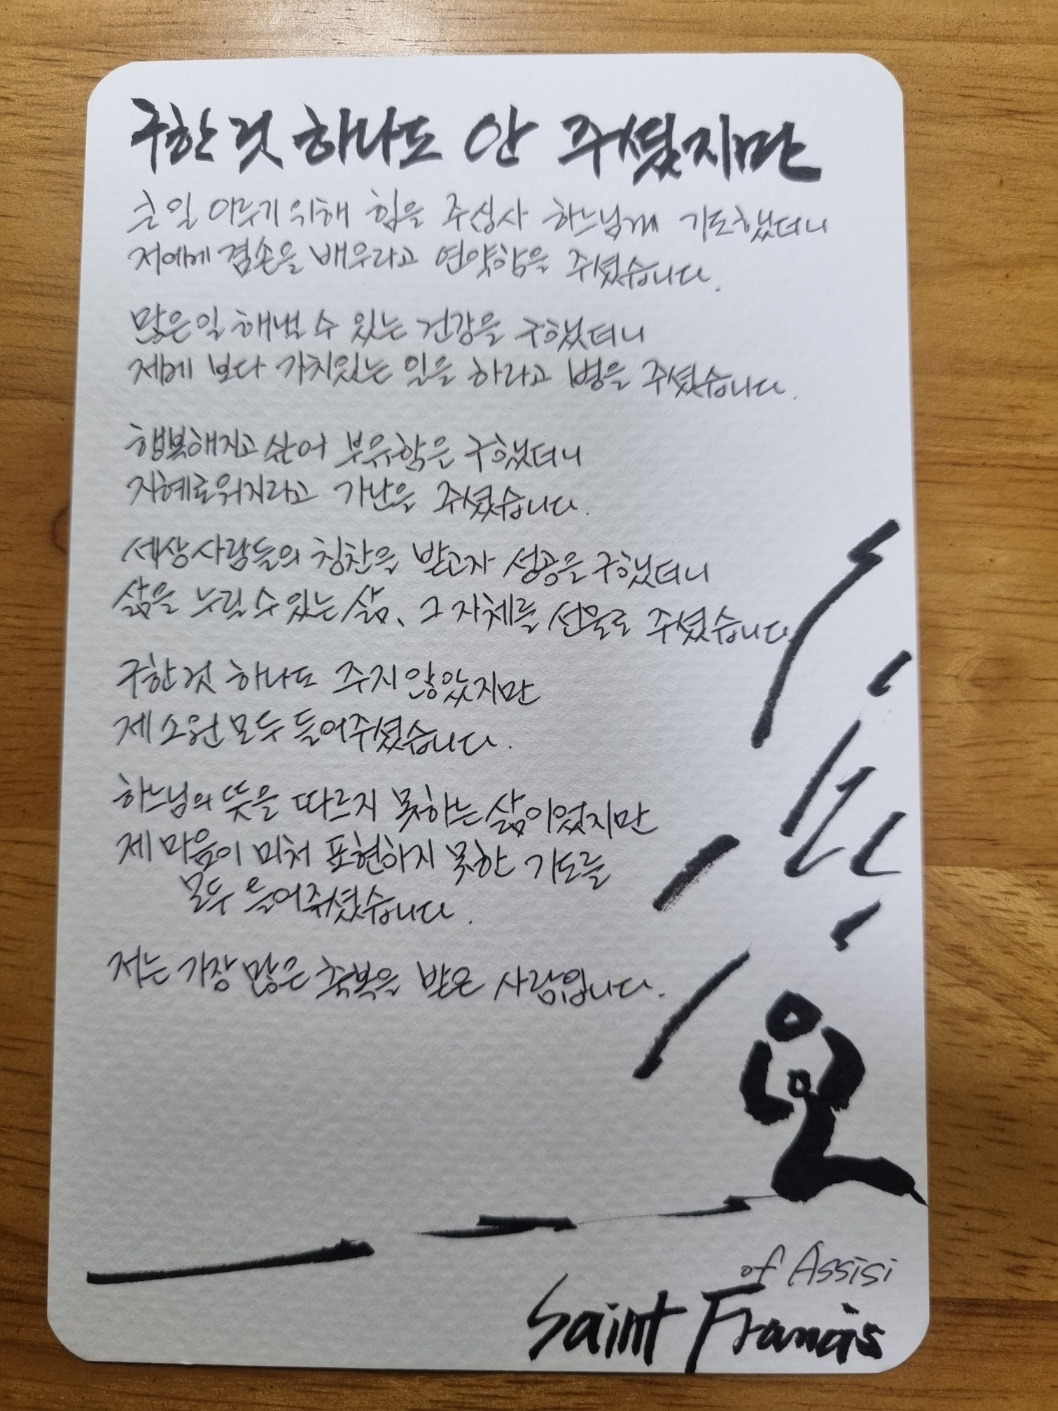 구한 것 하나도 안 주셨지만
큰 일 이루기 위해 힘을 주십사 하느님께 기도했더니
저에게 겸손을 배우라고 연약함을 주셨습니다.
많은 일 해낼 수 있는 건강을 구했더니
제게 보다 가치있는 일을 하라고 병을 주셨습니다.
행복해지고 싶어 부유함을 구했더니
지혜로워지라고 가난을 주셨습니다.
세상 사람들의 칭찬을 받고자 성공을 구했더니
삶을 누릴 수 있는 삶, 그 자체를 선물로 주셨습니다
구한 것 하나도 주지 않았지만
제 소원 모두 들어주셨습니다.
하느님의 뜻을 따르지 못하는 삶이었지만
제 마음이 미처 표현하지 못한 기도를
모두 들어주셨습니다.
저는 가장 많은 축복을 받은 사람입니다.
of Assisi
Saint Francis